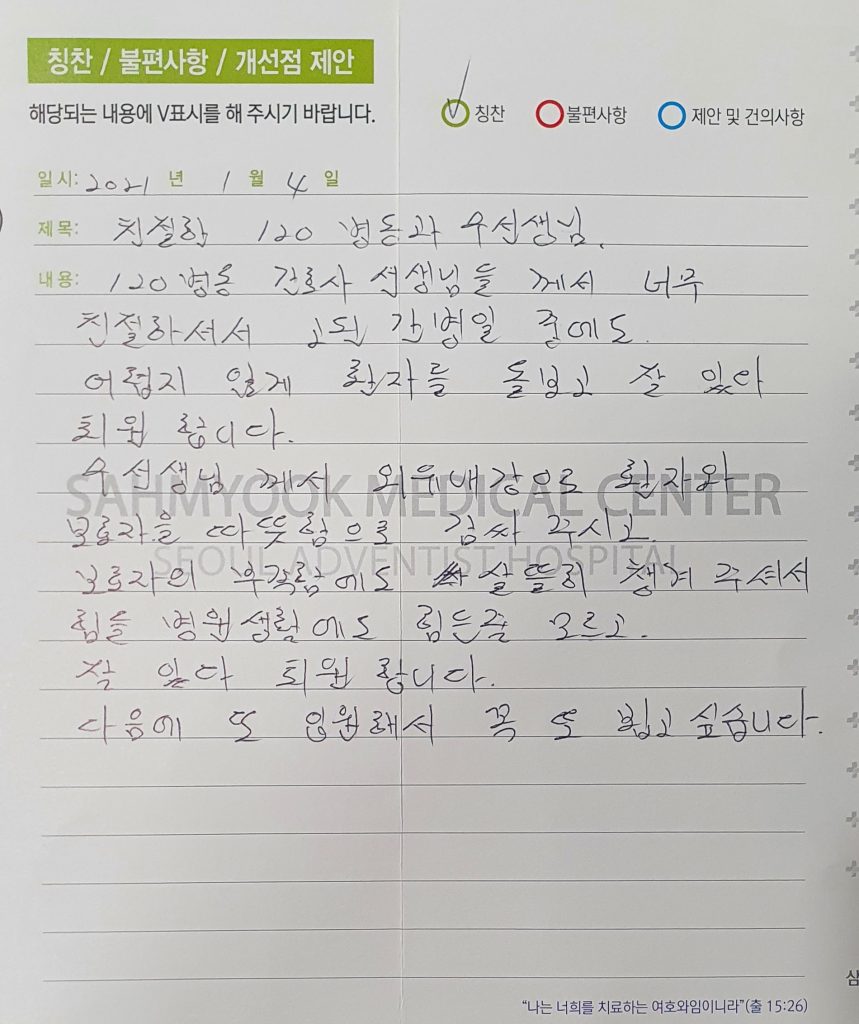 칭찬 / 불편사항 / 개선점 제안
해당되는 내용에 V표시를 해 주시기 바랍니다.
칭찬 불편사항 제안 및 건의사항
일시: 2021 년 1 월 4 일
제목: 친절함 120 병동과 수선생님.
내용: 120 병동 간호사 선생님들 께서 너무
친절하셔서 고된 간병일 중에도.
어렵지 않게 환자를 돌보고 잘 있다
퇴원 합니다.
수선생님 께서 외유내강으로 환자와
SAHMYOOK MEDICAL CENTER
보호자을 따뜻함으로 감싸 주시고.
SEOUL ADVENTIST HOSPITAL
보호자의 부족함에도 살뜰히 챙겨 주셔서
힘들 병원생활에도 힘든줄 모르고.
잘 있다 퇴원 합니다.
다음에 또 입원해서 꼭 또 뵙고 싶습니다.
"나는 너희를 치료하는 여호와임이니라"(출 15:26)
삼